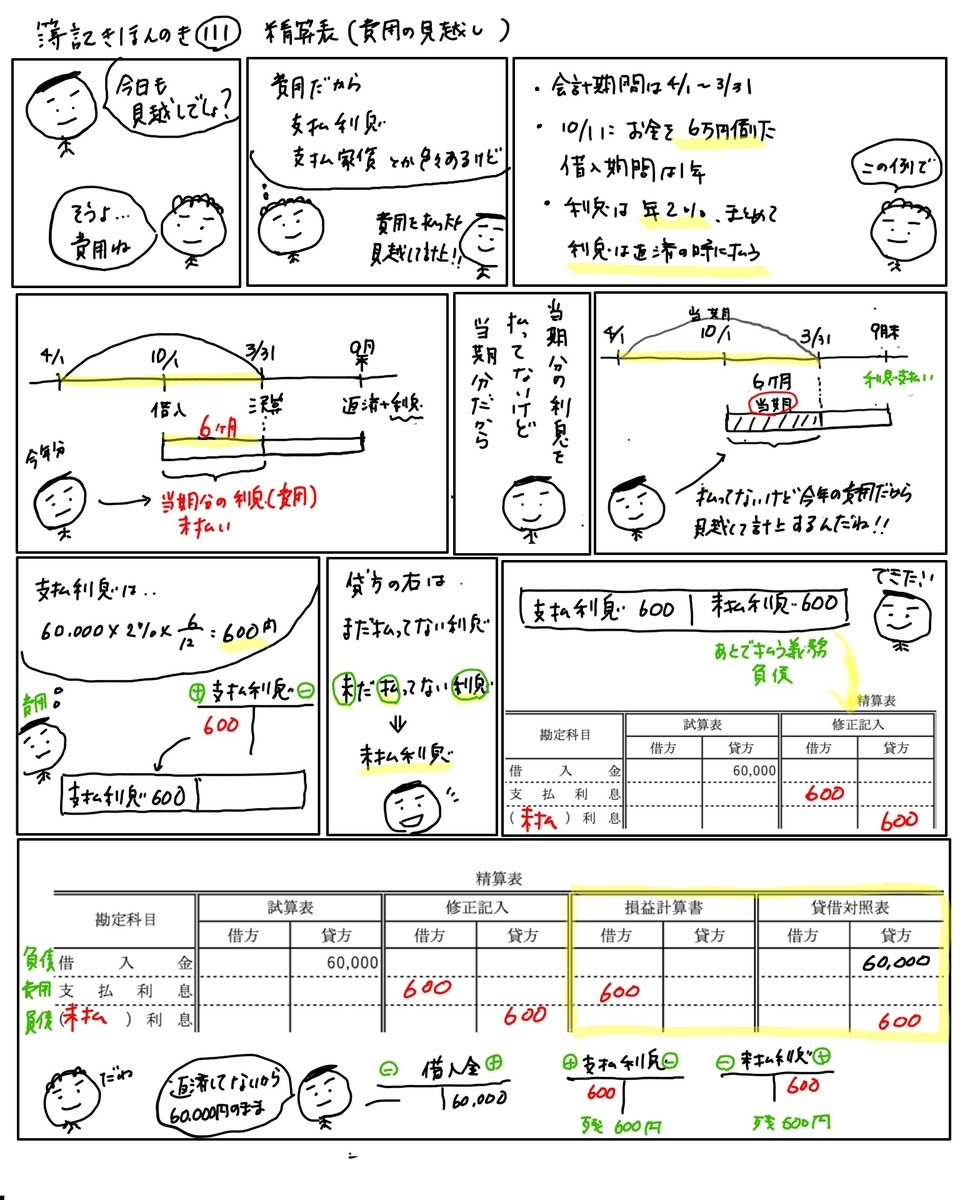 簿記きほんのき111 精算表(費用の見越し)
今日も
見越しでしょ?
そうよ…
費用ね
費用だから
支払利息
支払家賃とか色々あるけど
費用を払ったと
見越して計上!!
・会計期間は4/1~3/31
・10/1にお金を6万円借りた
借入期間は1年
・利息は年2%、まとめて
利息は返済の時に払う
この例で
4/1 10/1 3/31 9月末
借入 決算 返済+利息
6ヶ月
今年分
当期分の利息(費用)
未払い
当期分の利息を
払ってないけど
当期分だから
当期
4/1 10/1 3/31 9月末
利息支払い
6ヶ月
当期
払ってないけど今年の費用だから
見越して計上するんだね!!
支払利息は..
60.000×2%×6/12=600円
費用
⊕支払利息⊖
600
支払利息 600
貸方の右は
まだ払ってない利息
未だ払ってない利息
⇓
未払利息
支払利息 600 未払利息 600
できたい
あとで払う義務
負債
精算表
勘定科目 試算表 修正記入
借方 貸方 借方 貸方
借入金 60,000
支払利息 600
(未払)利息 600
精算表
勘定科目 試算表 修正記入 損益計算書 貸借対照表
借方 貸方 借方 貸方 借方 貸方 借方 貸方
負債 借入金 60,000 60,000
費用 支払利息 600 600
負債 (未払)利息 600 600
だね
返済してないから
60.000円のまま
⊖ 借入金 ⊕
60,000
⊕支払利息⊖
600
残600円
⊖未払利息⊕
600
残600円